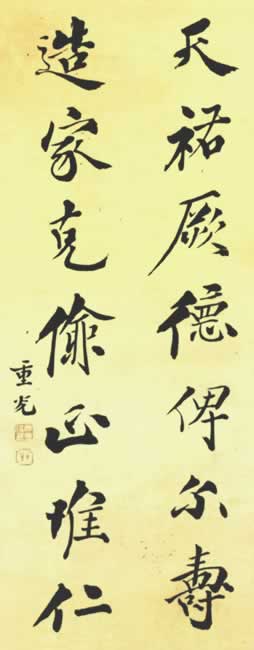 天祐厥德俾尔壽
造家克儉正惟仁
重光